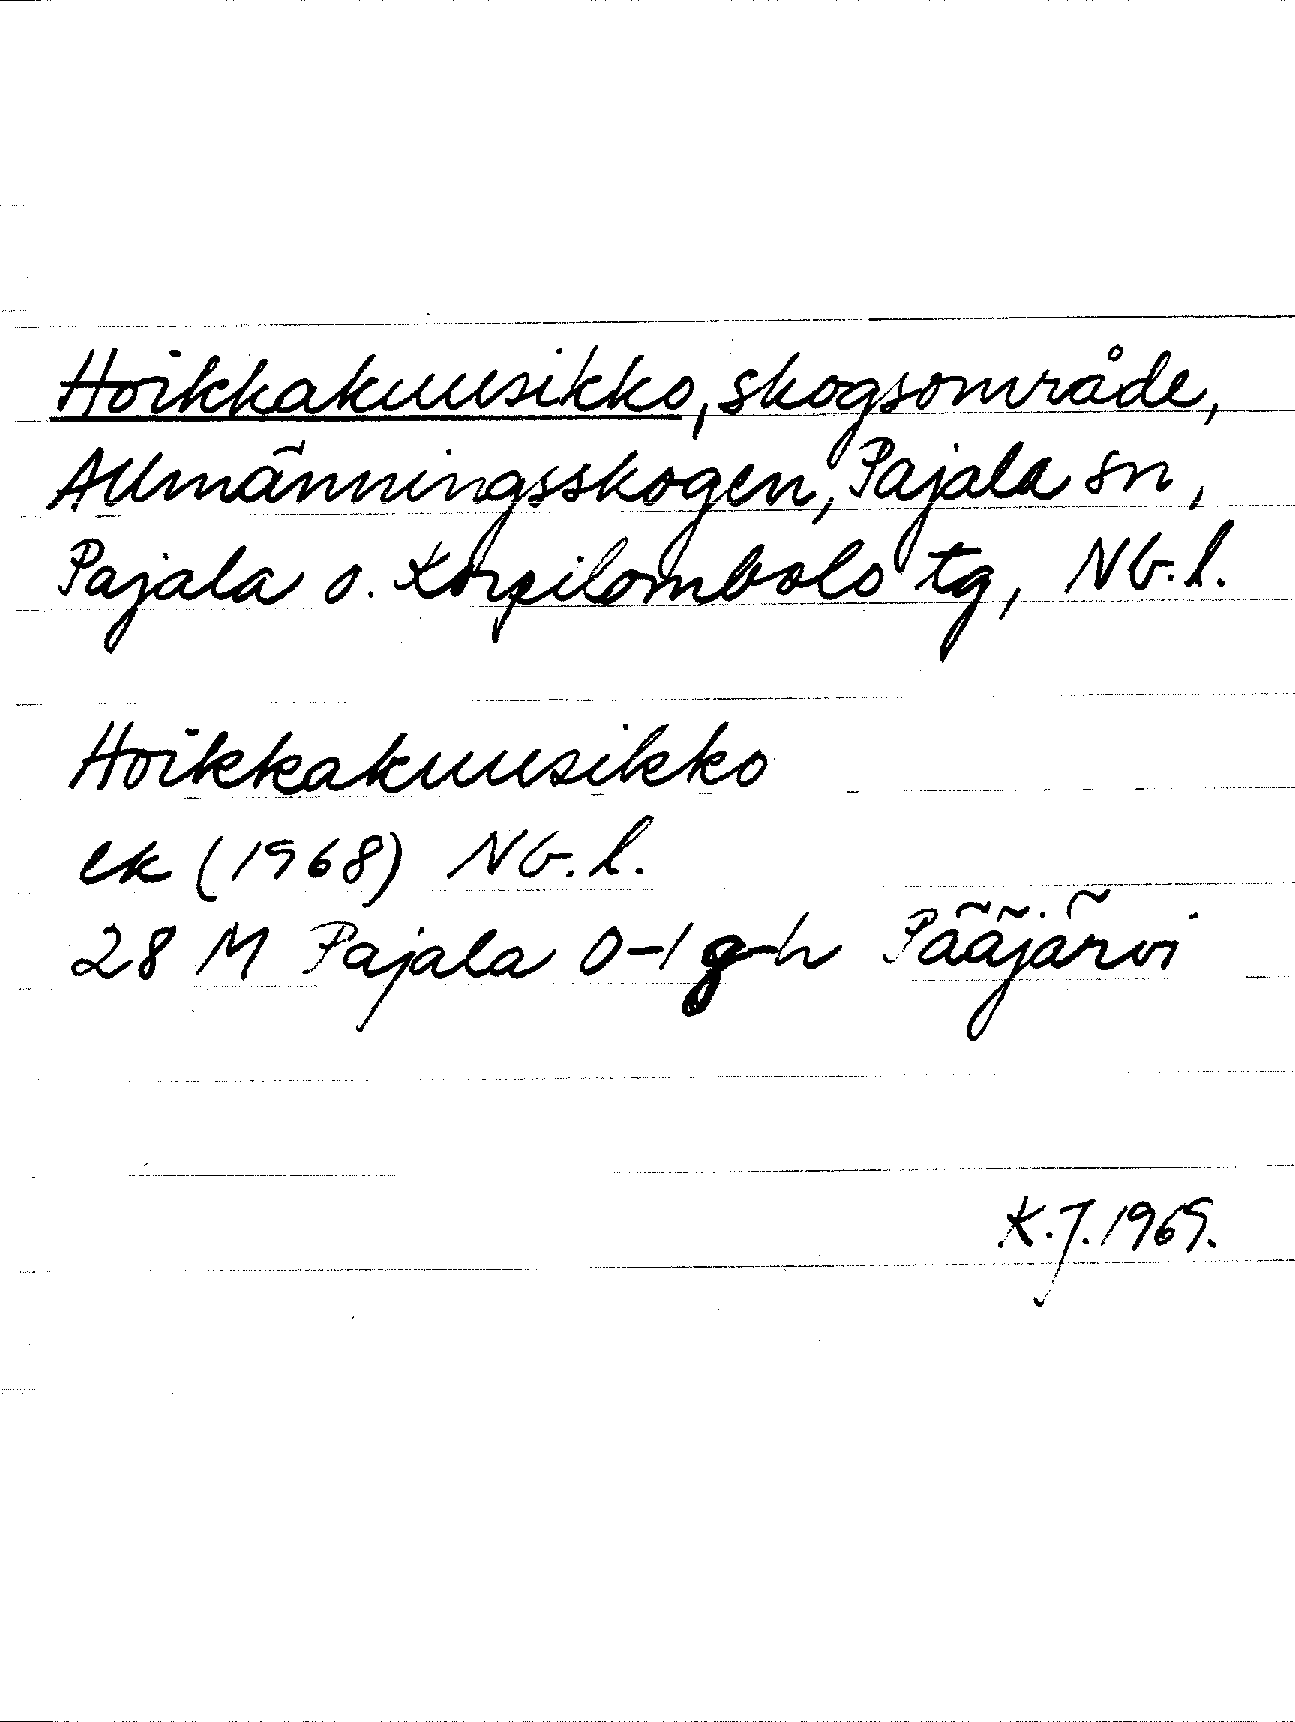 Hoikkakuusikko, skogsområde,
Allmänningsskogen, Pajala sn,
Pajala o. Korpilombolo tg, Nb.l.
Hoikkakuusikko
ek (1968) Nb.l.
28 M Pajala 0-1 g-h Pääjärvi
K.J. 1969.